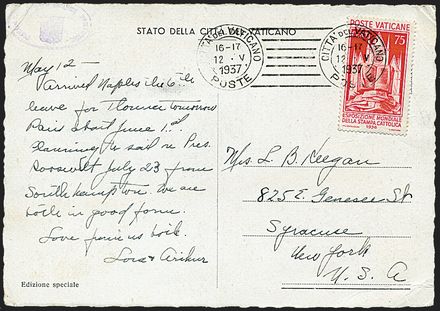 STATO DELLA CITTÀ DEL VATICANO
CITTÀ DEL VATICANO
16-17
12 · V
1937
POSTE
CITTÀ DEL VATICANO
16-17
12 · V
1937
POSTE
POSTE VATICANE
75
ESPOSIZIONE MONDIALE
DELLA STAMPA CATTOLICA
1936
May 12 -
Arrived Naples the 6th
leave for Florence tomorrow
Paris about June 1st.
Planning to sail on Pres.
Roosevelt July 23 from
Southampton. We are
both in good form.
Love from us both.
Lois & Arthur
Mrs. L. B. Keegan
825 E. Genesee St
Syracuse
New York
U. S. A
Edizione speciale